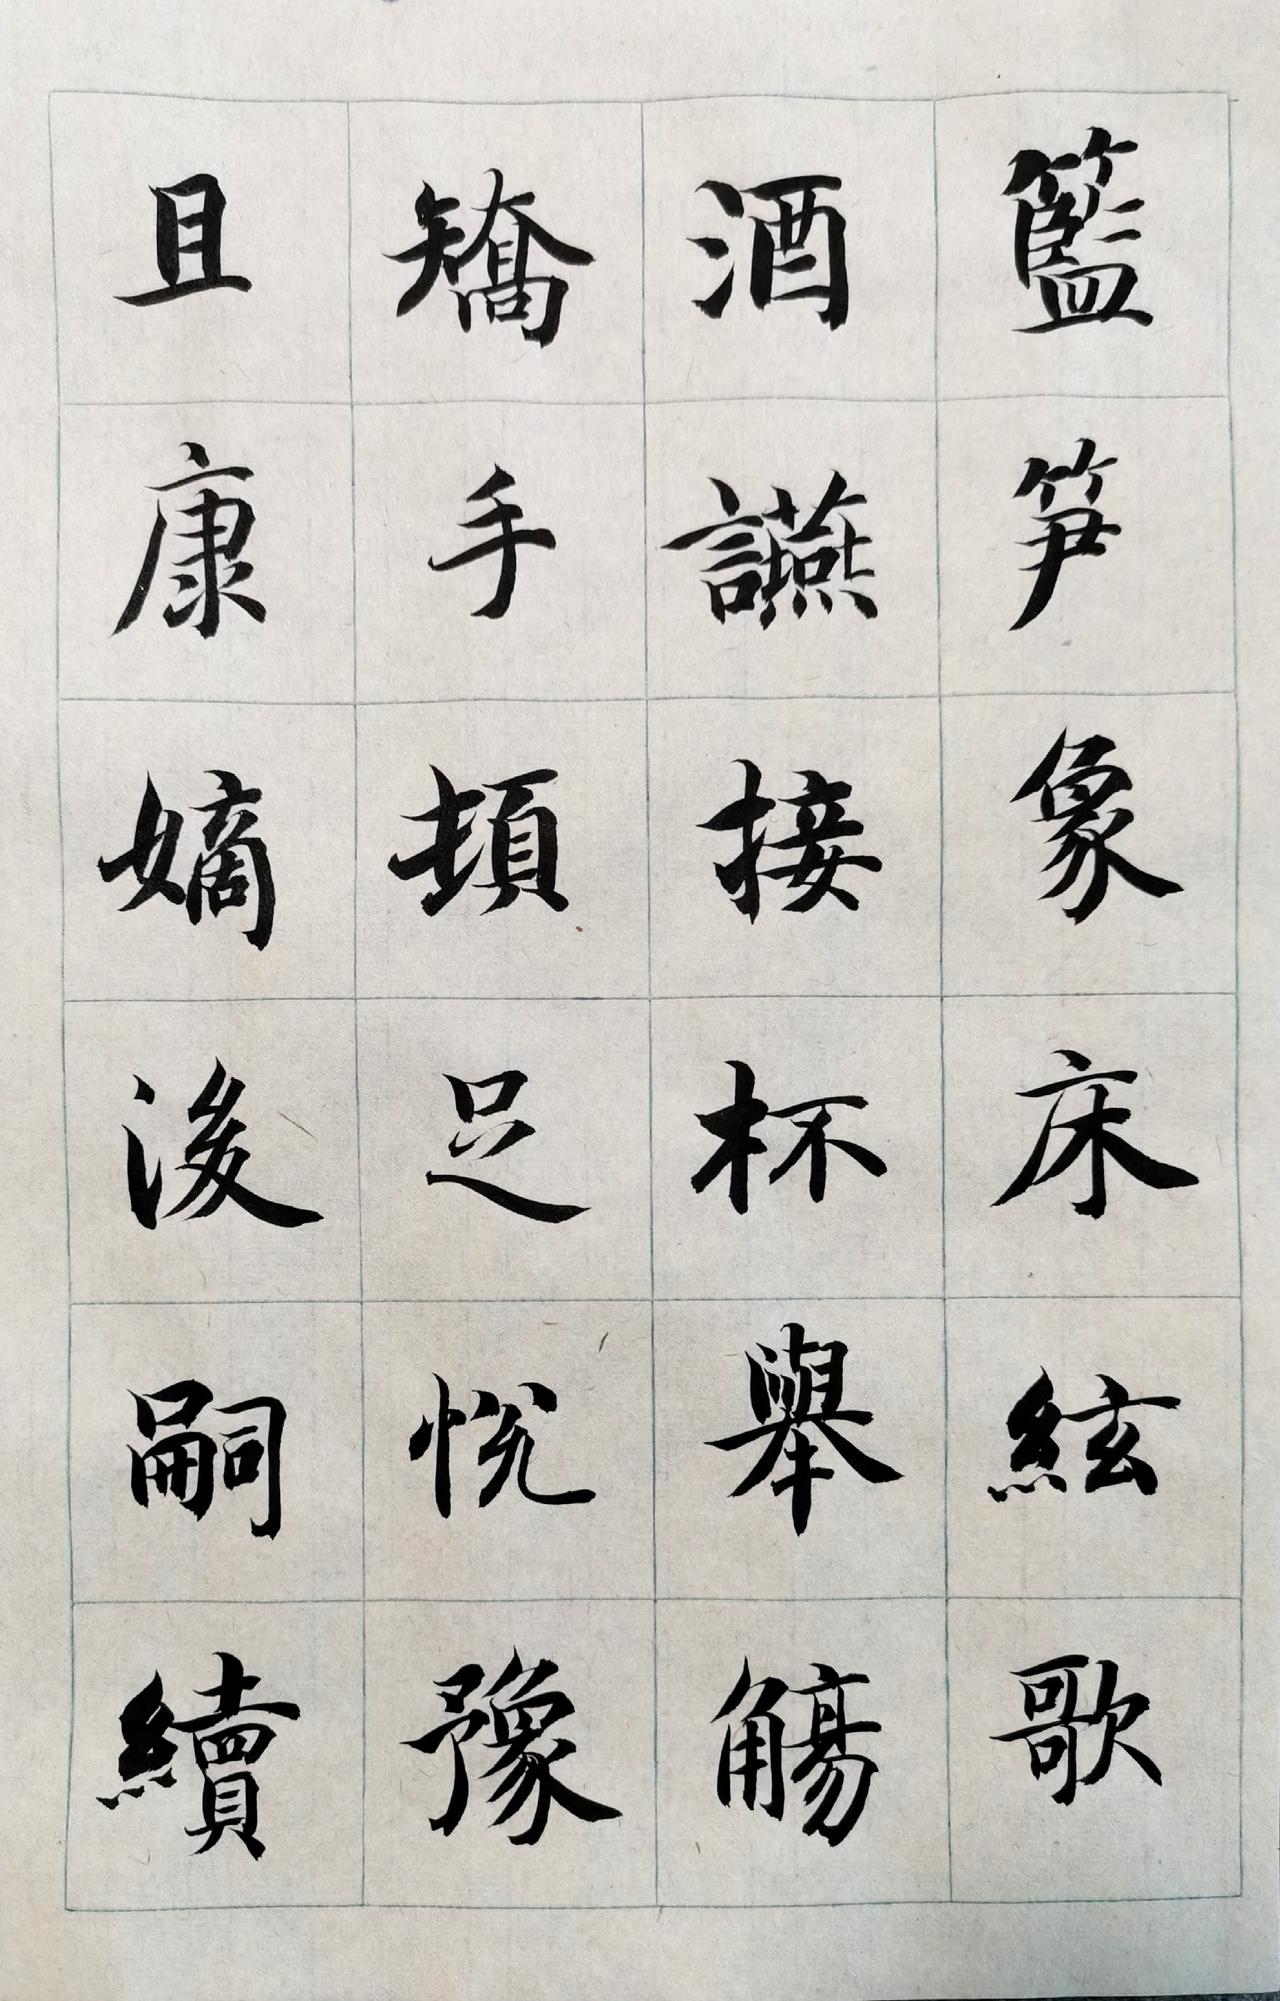 籃笋象床絃歌
酒讌接杯舉觴
矯手頓足悅豫
且康嫡後嗣續